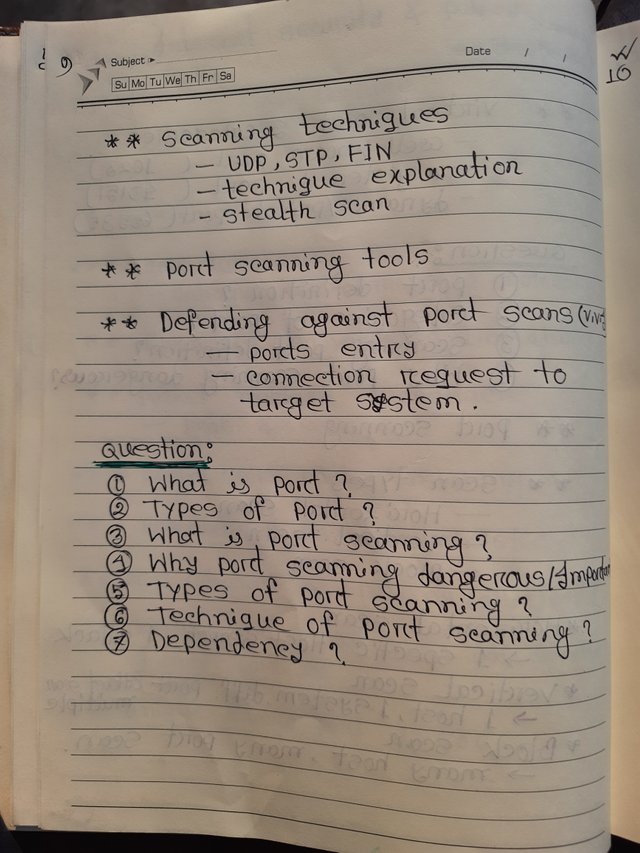 Subject
Date / /
Su Mo Tu We Th Fr Sa
** Scanning techniques
— UDP, STP, FIN
— technique explanation
— stealth scan
** Port scanning tools
** Defending against port scans (v.v.
— ports entry
— connection request to
target system.
Question:
① What is port?
② Types of port?
③ What is port scanning?
④ Why port scanning dangerous/Important
⑤ Types of port scanning?
⑥ Technique of port scanning?
⑦ Dependency?
10